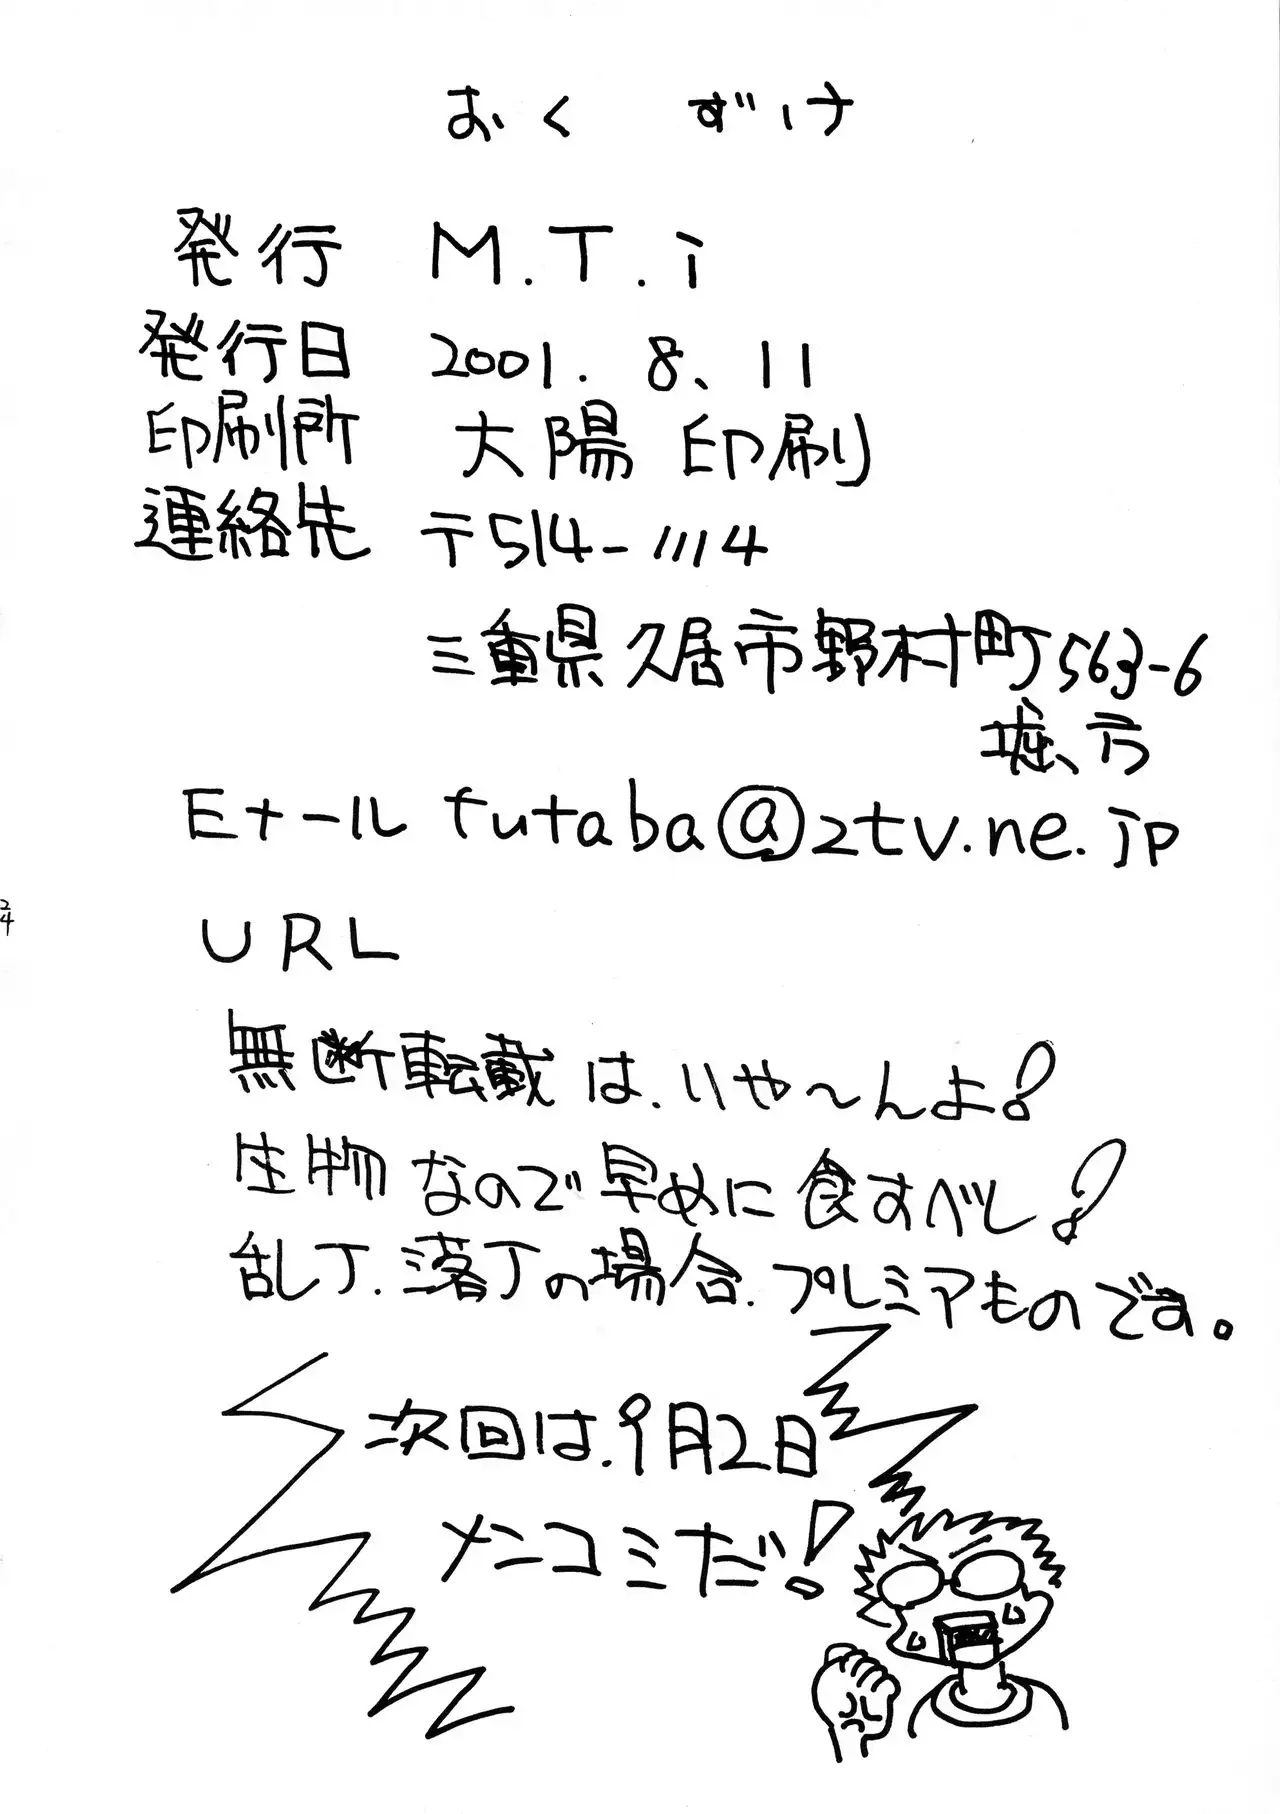 おくずけ
発行 M.T.i
発行日 2001.8、11
印刷所 大陽印刷
連絡先 〒514-1114
三重県久居市野村町563-6
堀、方
Eメール futaba@ztv.ne.jp
URL
無断転載は、いや〜んよ!
生物なので早めに食すべし!
乱丁、落丁の場合、プレミアものです。
次回は、9月2日
メンコミだ!
24